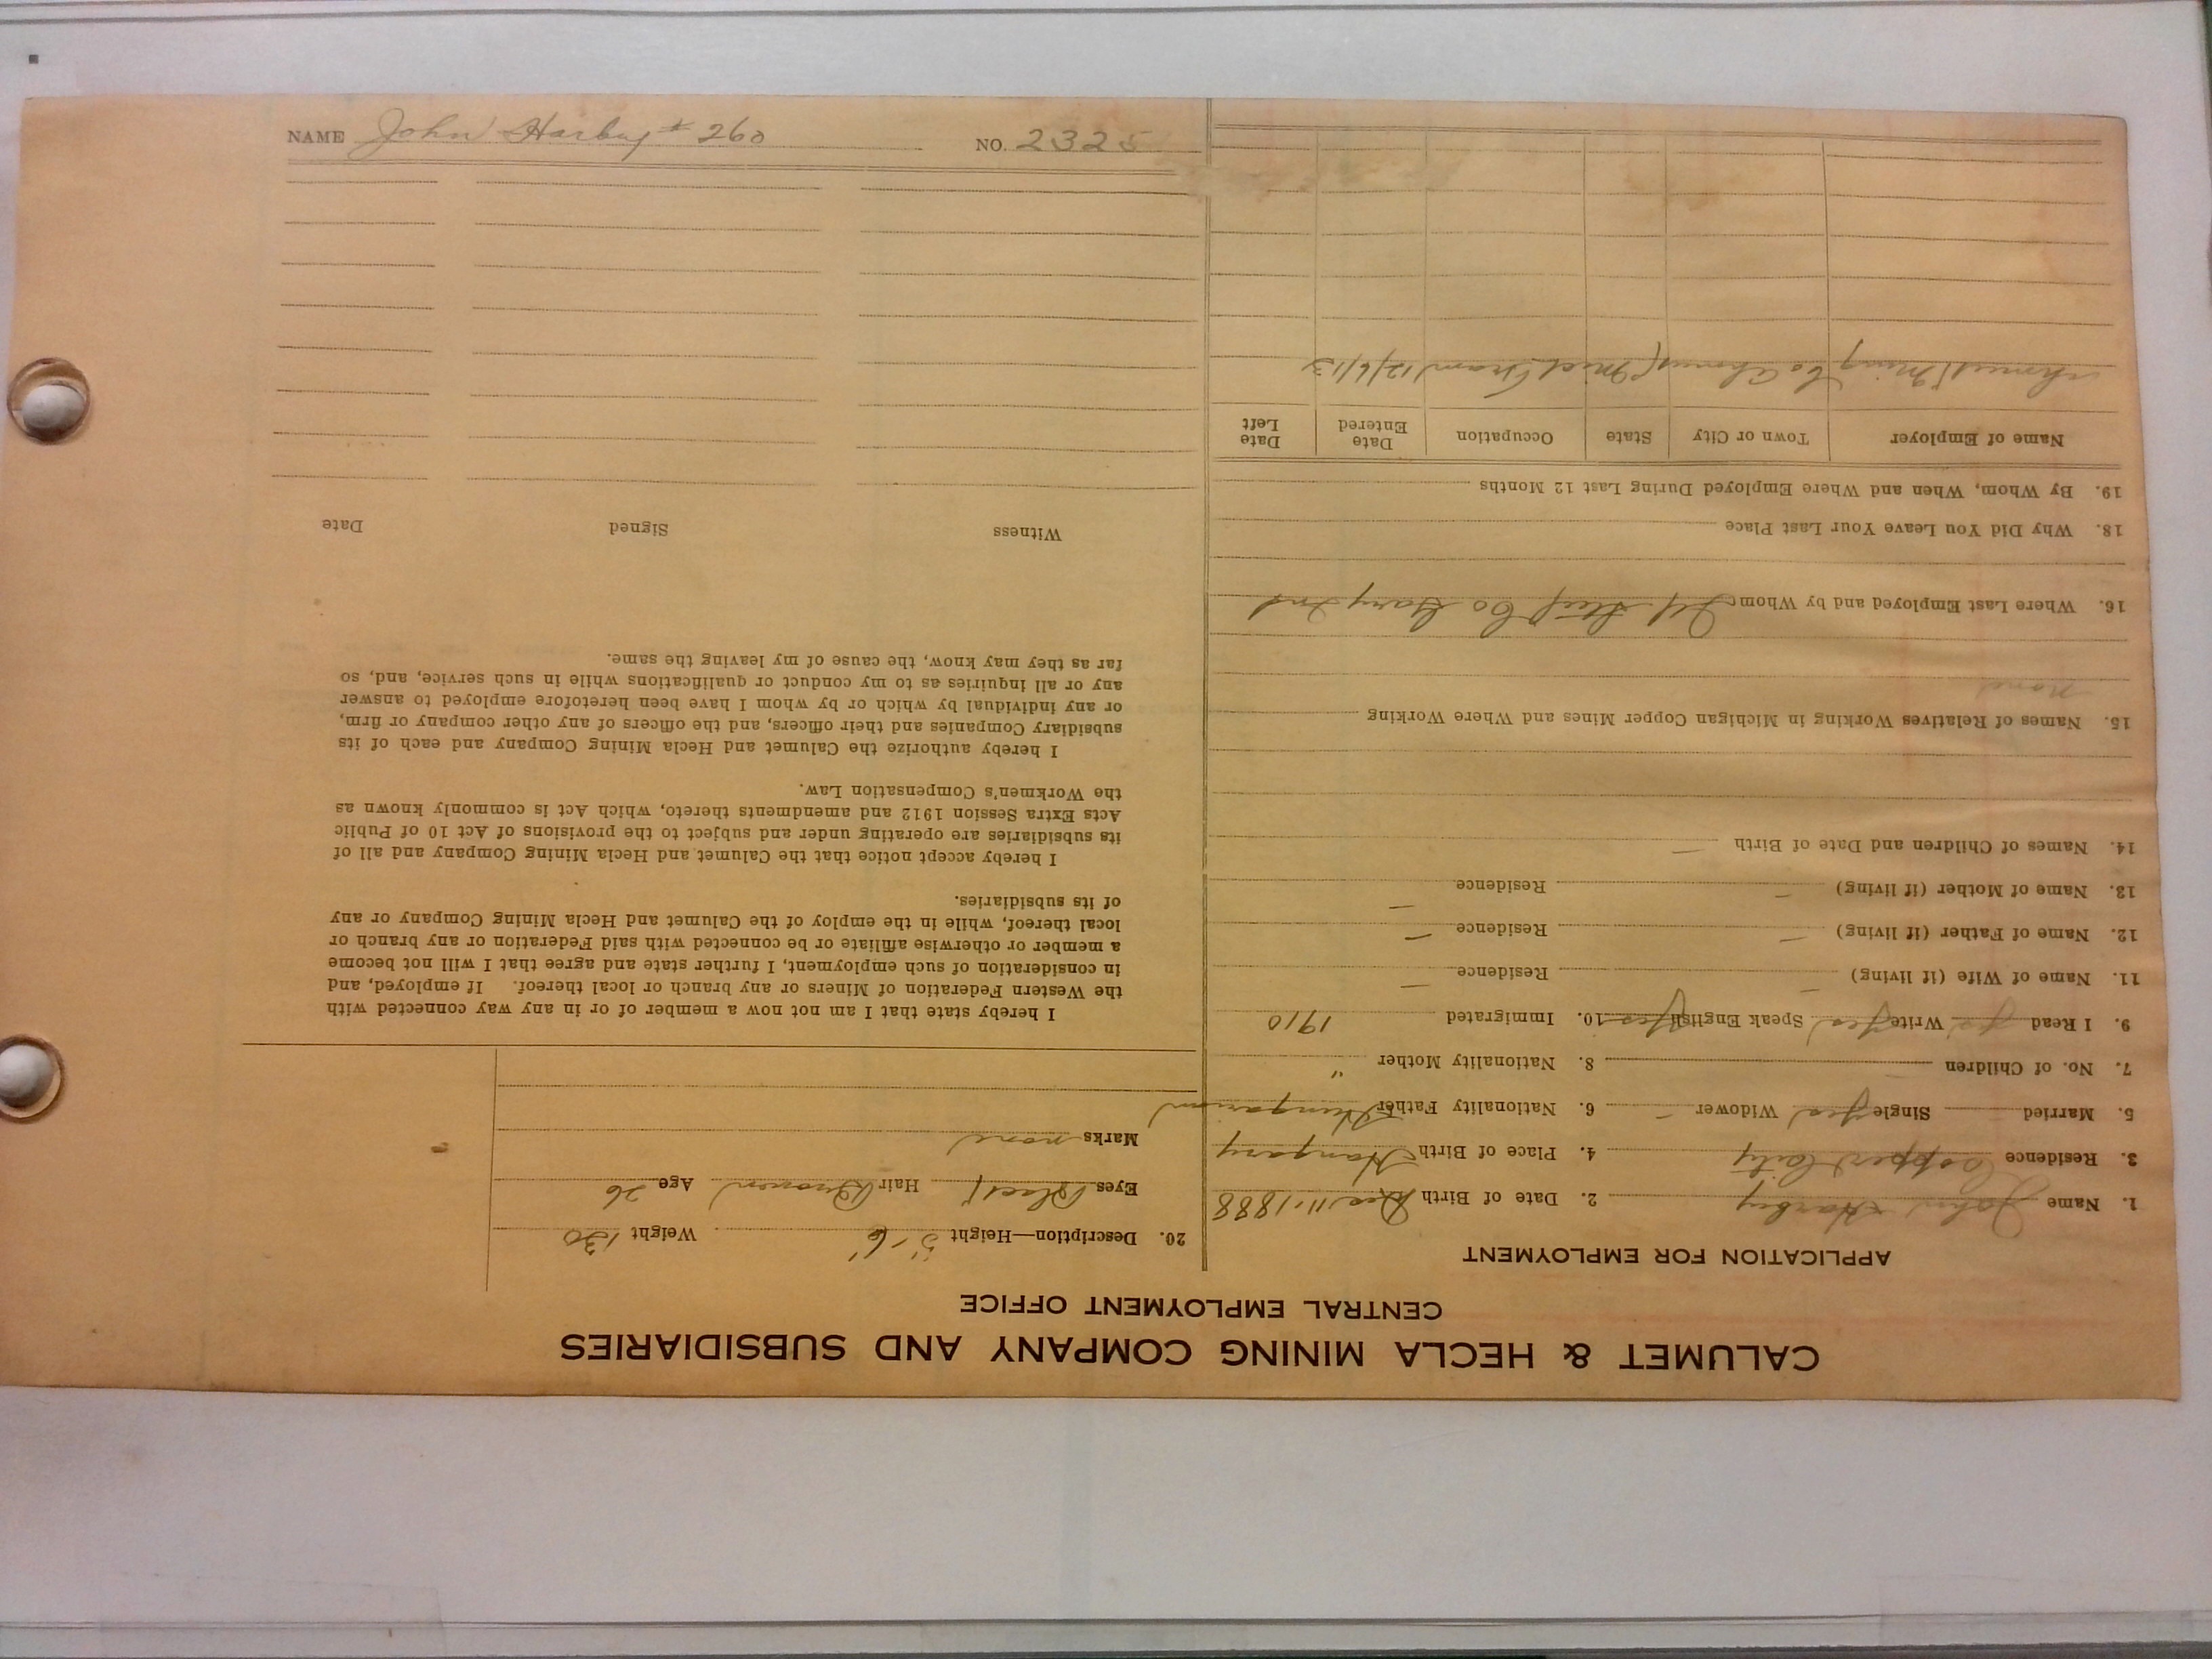 NAME John Harbuy # 260 NO. 2325
CALUMET & HECLA MINING COMPANY AND SUBSIDIARIES
CENTRAL EMPLOYMENT OFFICE
APPLICATION FOR EMPLOYMENT
1. Name John 2. Date of Birth Dec 11, 1888
3. Residence Copper City 4. Place of Birth Hungary
5. Married Single Yes Widower — 6. Nationality Father Hungarian
7. No. of Children 8. Nationality Mother "
9. I Read yes Write yes Speak English yes 10. Immigrated 1910
11. Name of Wife (if living) — Residence —
12. Name of Father (if living) — Residence —
13. Name of Mother (if living) — Residence —
14. Names of Children and Date of Birth —
15. Names of Relatives Working in Michigan Copper Mines and Where Working
none
16. Where Last Employed and by Whom Steel Co Gary Ind
18. Why Did You Leave Your Last Place
19. By Whom, When and Where Employed During Last 12 Months
Name of Employer Town or City State Occupation Date Entered Date Left
Ahmeek Mining Co Ahmeek Mich Tram 12/6/13
20. Description—Height 5'-6" Weight 130
Eyes Black Hair Brown Age 26
Marks none
I hereby state that I am not now a member of or in any way connected with
the Western Federation of Miners or any branch or local thereof. If employed, and
in consideration of such employment, I further state and agree that I will not become
a member or otherwise affiliate or be connected with said Federation or any branch or
local thereof, while in the employ of the Calumet and Hecla Mining Company or any
of its subsidiaries.
I hereby accept notice that the Calumet and Hecla Mining Company and all of
its subsidiaries are operating under and subject to the provisions of Act 10 of Public
Acts Extra Session 1912 and amendments thereto, which Act is commonly known as
the Workmen's Compensation Law.
I hereby authorize the Calumet and Hecla Mining Company and each of its
subsidiary Companies and their officers, and the officers of any other company or firm,
or any individual by which or by whom I have been heretofore employed to answer
any or all inquiries as to my conduct or qualifications while in such service, and, so
far as they may know, the cause of my leaving the same.
Witness Signed Date